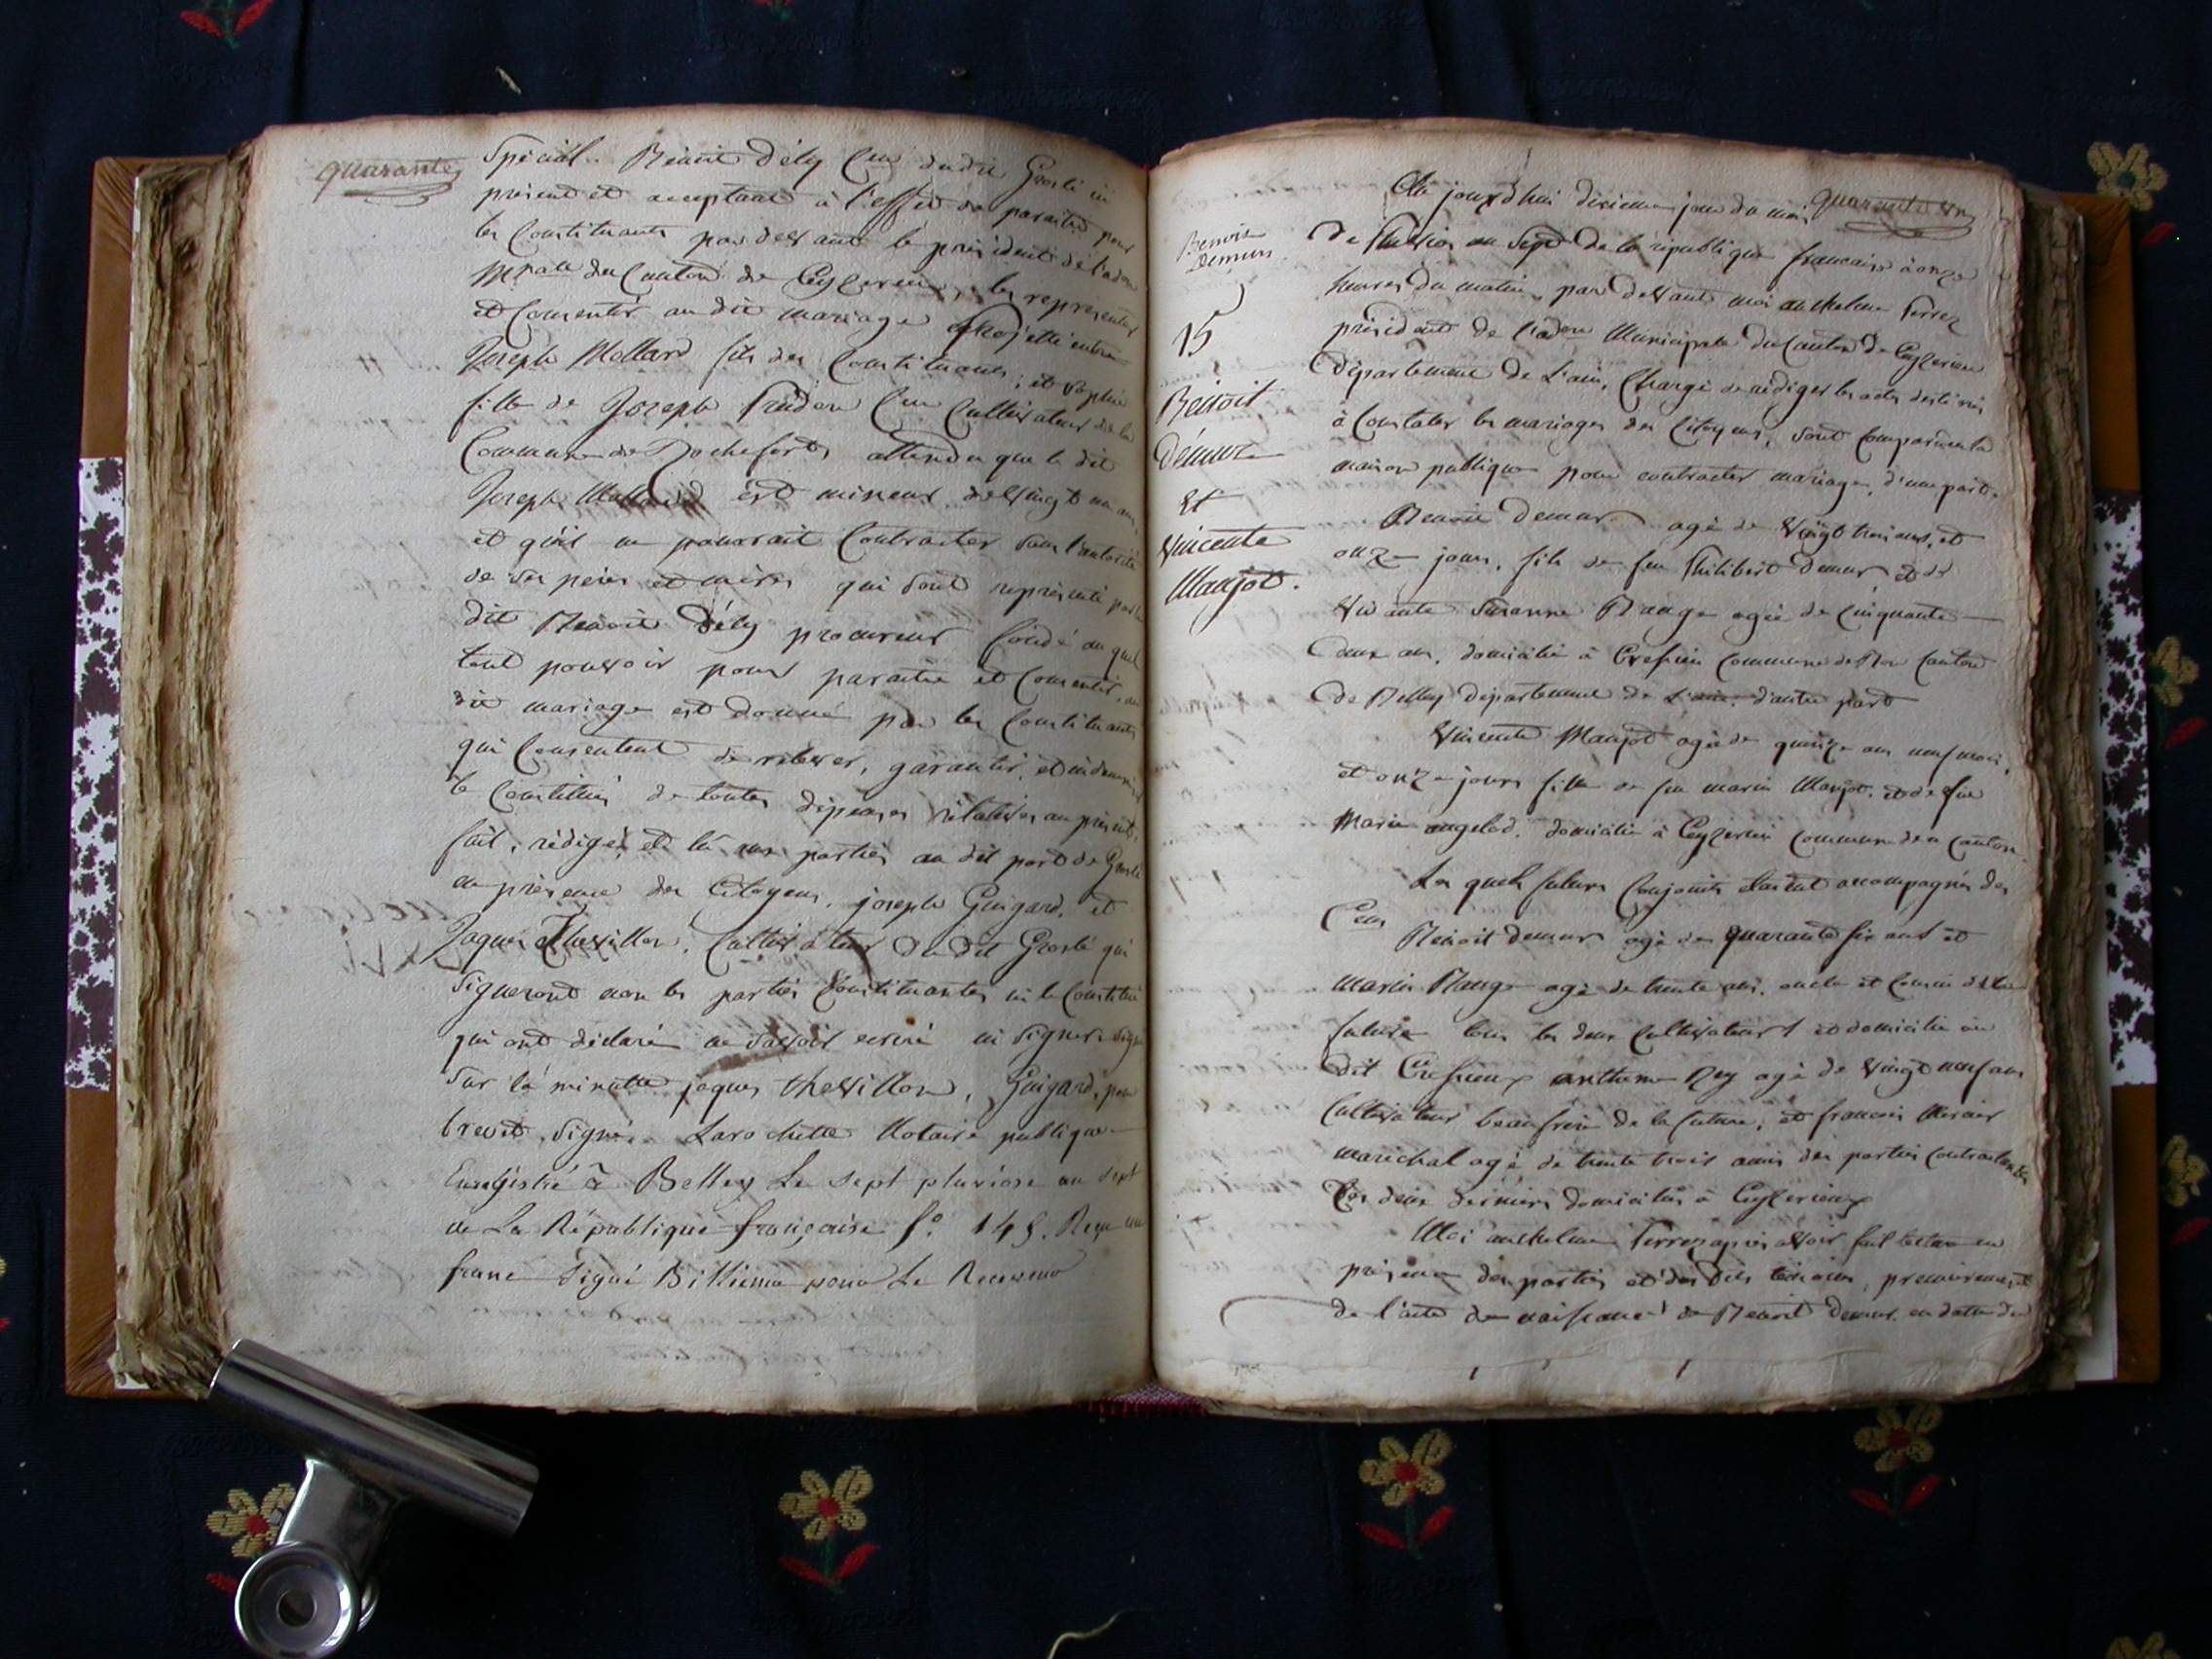 quarante
Spécial. Benoit Dély Cen dudit Groslé ici
présent et acceptant à l'effet de paraitre pour
les Constituants par devant le président de l'adon
mpalle du Canton de Ceyzerieu, les représenter
et Consentir au dit mariage projetté entre
Joseph Mollard fils des Constituants, et Sophie
fille de Joseph Cen Cultivateur de la
Commune de Rochefort, attendu que le dit
Joseph Mollard est mineur de vingt un ans,
et qu'il ne pourrait Contracter sans l'autorité
de ses peres et mères qui sont représenté par le
dit Benoit Dély procureur fondé au quel
tout pouvoir pour paraitre et Consentir au
dit mariage est donné par les Constituants
qui Consentent de relever, garantir, et indemniser
le Constitué de toutes dépenses rélatives au présent,
fait, rédigé, et lu aux parties au dit port de Groslé
en présence des Citoyens, joseph Guigard, et
Jaques Thevillon, Cultivateur du dit Groslé qui
Signeront non les parties Constituantes ni le Constitué
qui ont déclaré ne savoir écrire ni signer. signé
Sur la minutte jaques thevillon, Guigard, pour
brevet, signé. Larochette Notaire publique
Enregistré à Belley Le sept pluviose an sept
de La République française fo. 145. Reçu un
franc Signé Billiema pour Le Receveur
quarante un
Au jourd'hui dixieme jour du mois
de Pluviose an Sept de la république francaise à onze
heures du matin, par devant moi anthelme Perrez
président de l'adon Municipale du Canton de Ceyzerieu
Département de L'ain, Chargé de rédiger les actes destinés
à Constater les mariages des Citoyens, sont Comparus en la
maison publique pour contracter mariage, d'une part.
Benoit Demur agé de Vingt trois ans, et
onze jours, fils de feu Philibert Demur et de
Vivante Suzanne Range agée de Cinquante
Deux ans, domicilié à Crefsieu Commune de Canton
de Belley Département de L'ain. d'autre part
Vincente Manjot agée de quinze ans neuf mois,
et onze jours fille de feu marin Manjot, et de feue
Marie angelod, domiciliée à Ceyzerieu Commune de ce Canton.
Les quels futurs Conjoints étaient accompagnés des
Cens Benoit Demur agé de quarante six ans et
marin Range agé de trente ans, oncle et Cousin de la
future tous les deux Cultivateurs et domicilié au
dit Crefsieux anthelme Rey agé de Vingt neuf ans
Cultivateur beau frère de la future, et francois
maréchal agé de trente trois amis des parties Contractantes
Les deux derniers domiciliés à Ceyzerieux
Moi anthelme Perrez après avoir fait lecture en
présence des parties et des dits témoins, premierement
de l'acte de naissance de Benoit Demur, en datte du
Benoit
Demurs
15
Benoit
Démur
et
Vincente
Manjot.